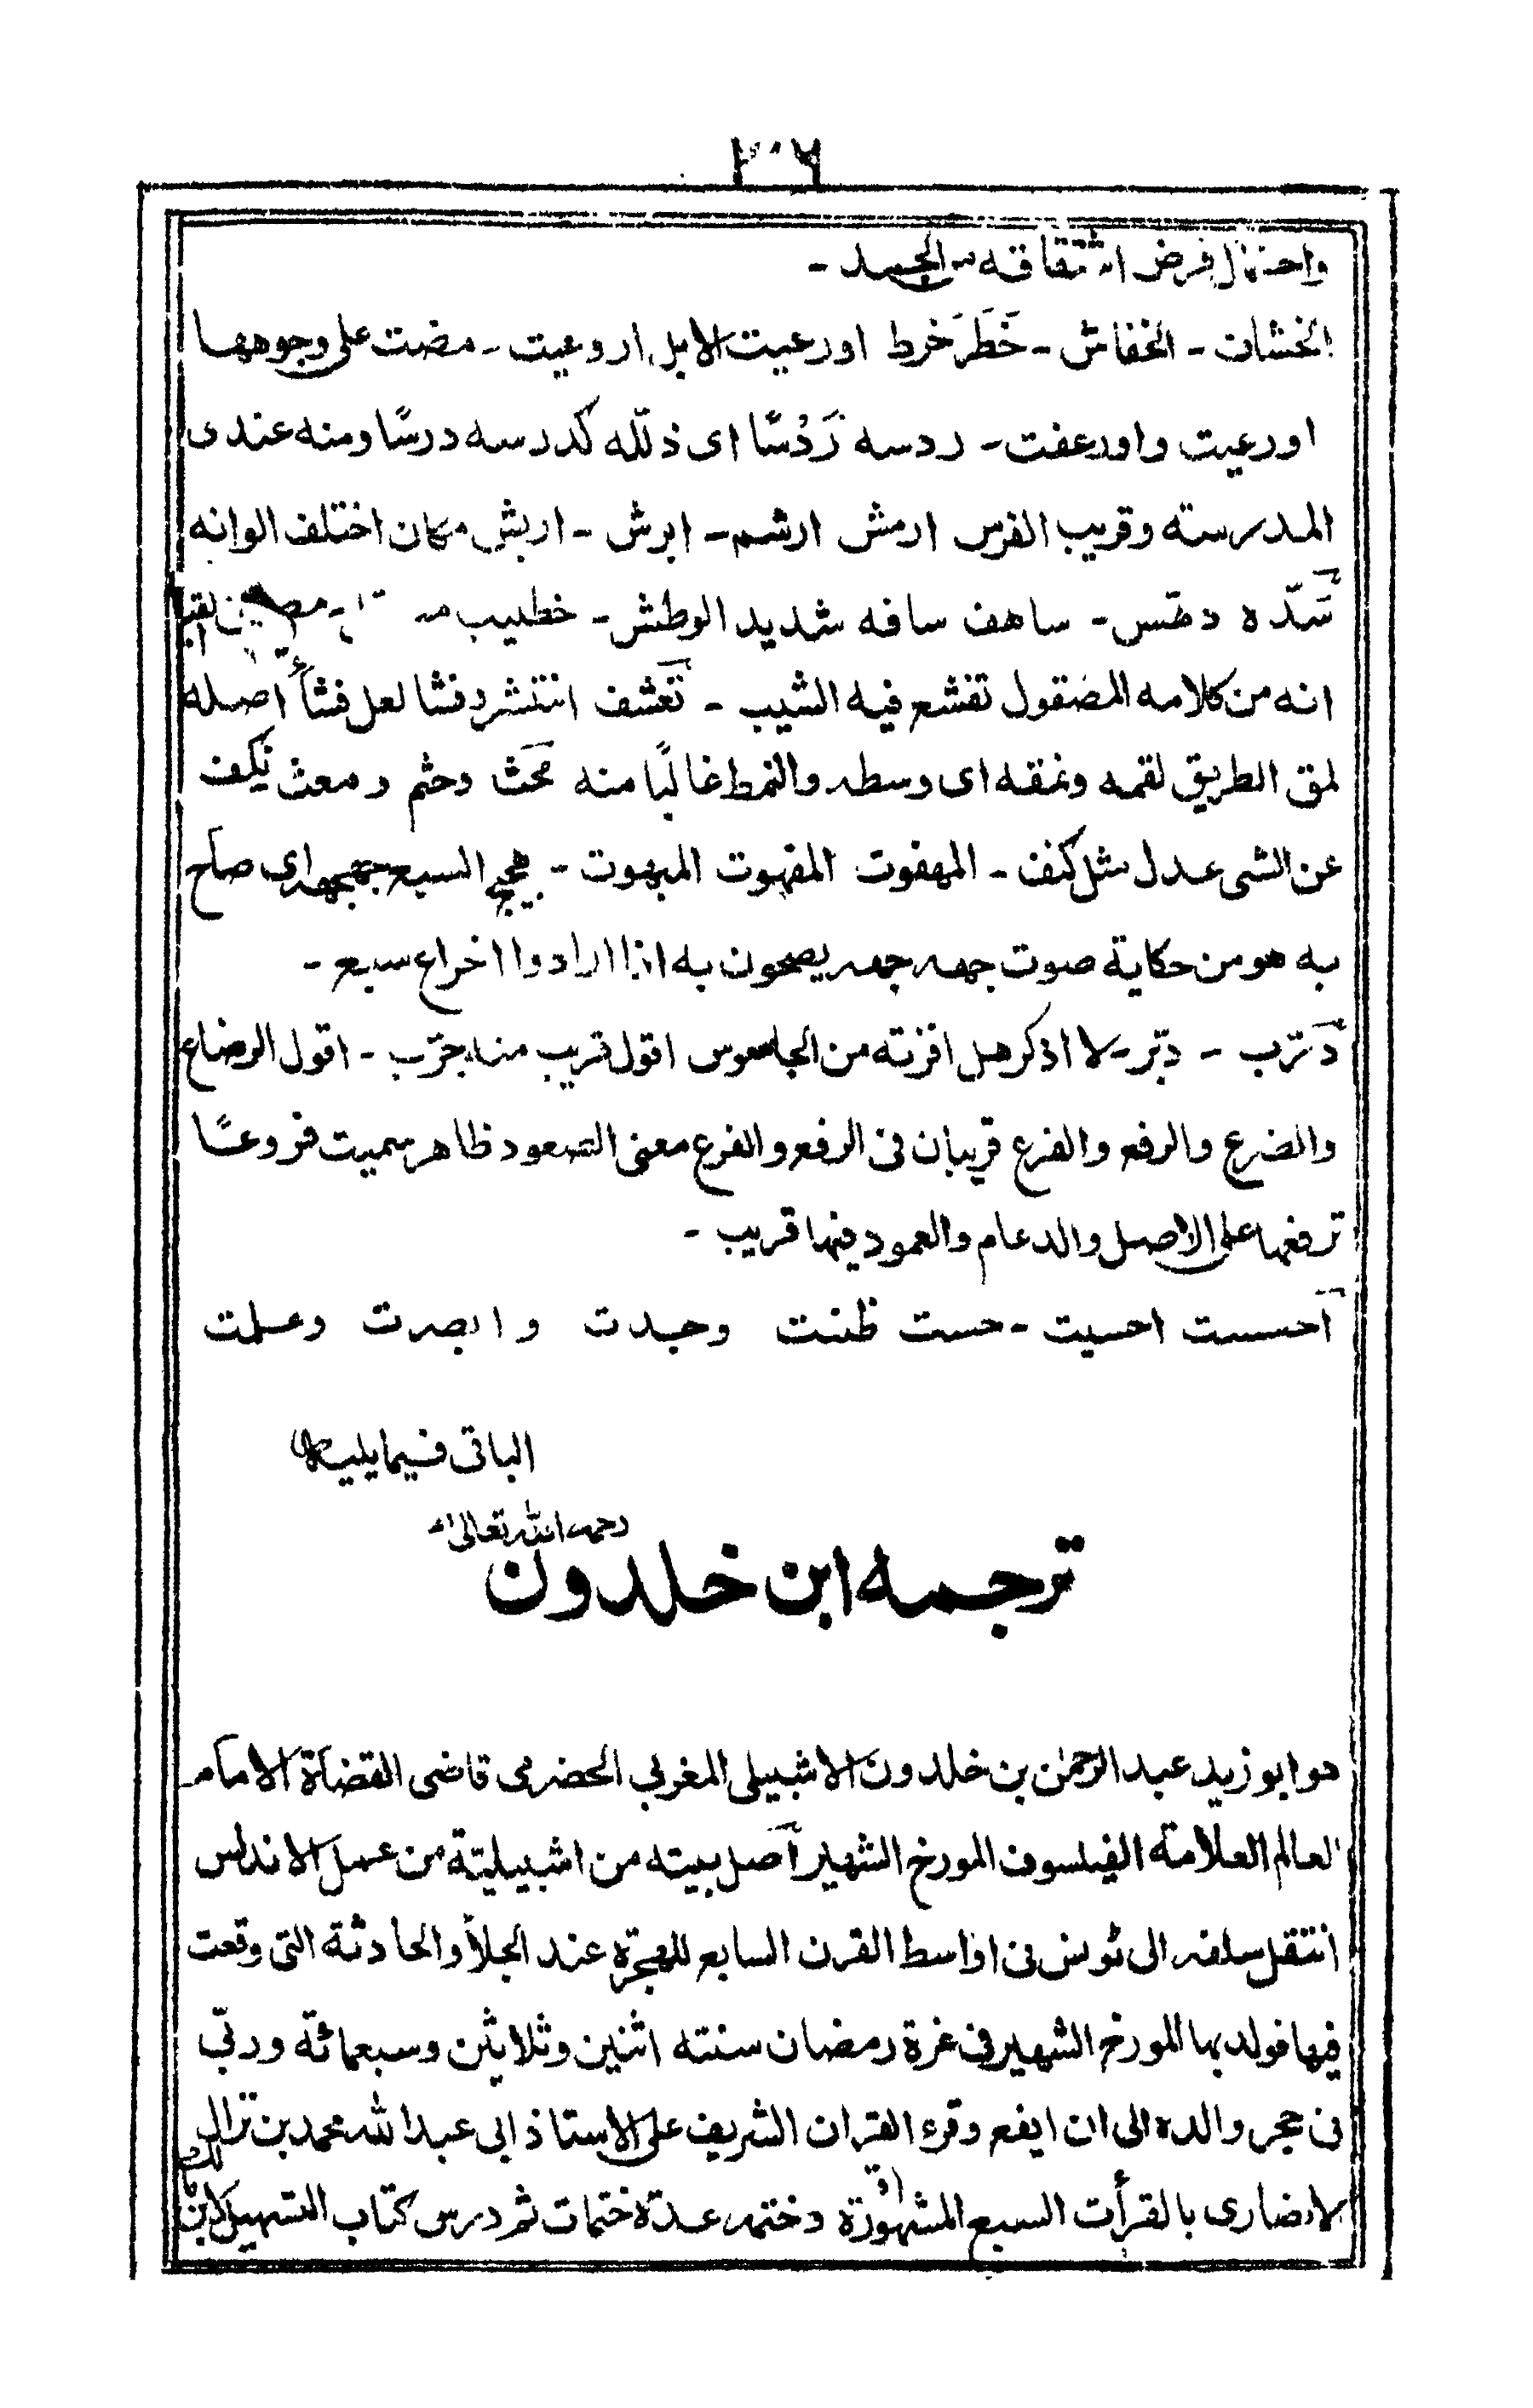 ٢٠٧
واحتمال فرض اشتقاقه من الجسد -
الخشاف - الخفاش - خَطَرَ خرط اورعيت الابل اروعيت - مضت على وجوهها
اورعيت واورعفت - ردسه رَدْسًا اى ذلّله كدرسه درسًا ومنه عندى
المدرسته وقريب الفرس ارمش ارشم - ابرش - اربش مكان اختلف الوانه
شدّه دهّس - ساهف سافه شديد الوطش - خطيب
انه من كلامه المضقول تفشع فيه الشيب - تعشف انتشر وفشا لعل فشأ اصله
لمق الطريق لقمه ونمقه اى وسطه والنمط غالبًا منه محث وحثم ومعث نكف
عن الشى عدل مثل كنف - المهفوت المفهوت المبهوت - هجهج السبع جهجهه اى صاح
به هو من حكاية صوت جهه جهه يصحون به اذا ارادوا اخراع سبع -
دَرّب - دبّر - لا اذكر هل اقزته من الجاسوس اقول قريب منه جرّب - اقول الرضاع
والضرع والرفع والفرع قريبان فى الرفع والفرع معنى الصعود ظاهر سميت فروعًا
ترفعها على الاصل والدعام والعمود فيها قريب -
احسست احسيت - حست ظننت وجدت وابصرت وعلمت
الباقى فيما يليه
رحمه الله تعالى
ترجمه ابن خلدون
هو ابو زيد عبد الرحمٰن بن خلدون الاشبيلى المغربي الحضرمى قاضى القضاة الامام
العالم العلامة الفيلسوف المورخ الشهير اصل بيته من اشبيليته من عمل الاندلس
انتقل سلفه الى تونس فى اواسط القرن السابع للهجرة عند الجلأ والحادثة التى وقعت
فيها فولد بها المورخ الشهير فى غرة رمضان سنته اثنين وثلاثين وسبعمائة وربّى
فى حجر والده الى ان ايفع وقرء القران الشريف على الاستاذ ابى عبد الله محمد بن تزال
لانضارى بالقرأت السبع المشهورة وختمه عدة ختمات ثم درس كتاب التسهيل لابن مالك